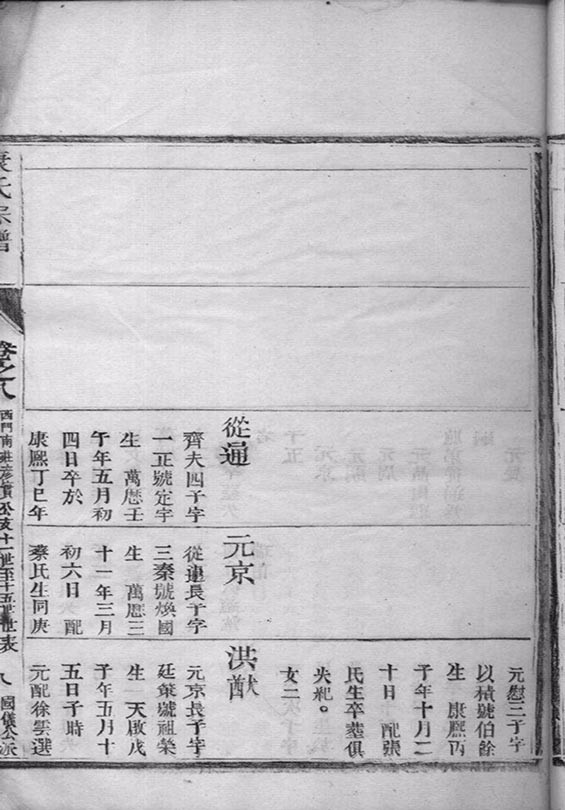 從通
齊夫四子字
一正號定宇
生 萬曆壬
午年五月初
四日卒於
康熙丁巳年
元京
從通長子字
三秦號煥國
生 萬曆三
十一年三月
初六日 配
蔡氏生同庚
元慰三子字
以積號伯餘
生 康熙丙
子年十月二
十日 配張
氏生卒塟俱
失紀。
女二
洪猷
元京長子字
廷策號祖榮
生 天啟戊
子年五月十
五日子時
元配徐雲選
袁氏宗譜
卷之八
西門南莊彦貴公支十一世至十五世世表
八
國儀公派